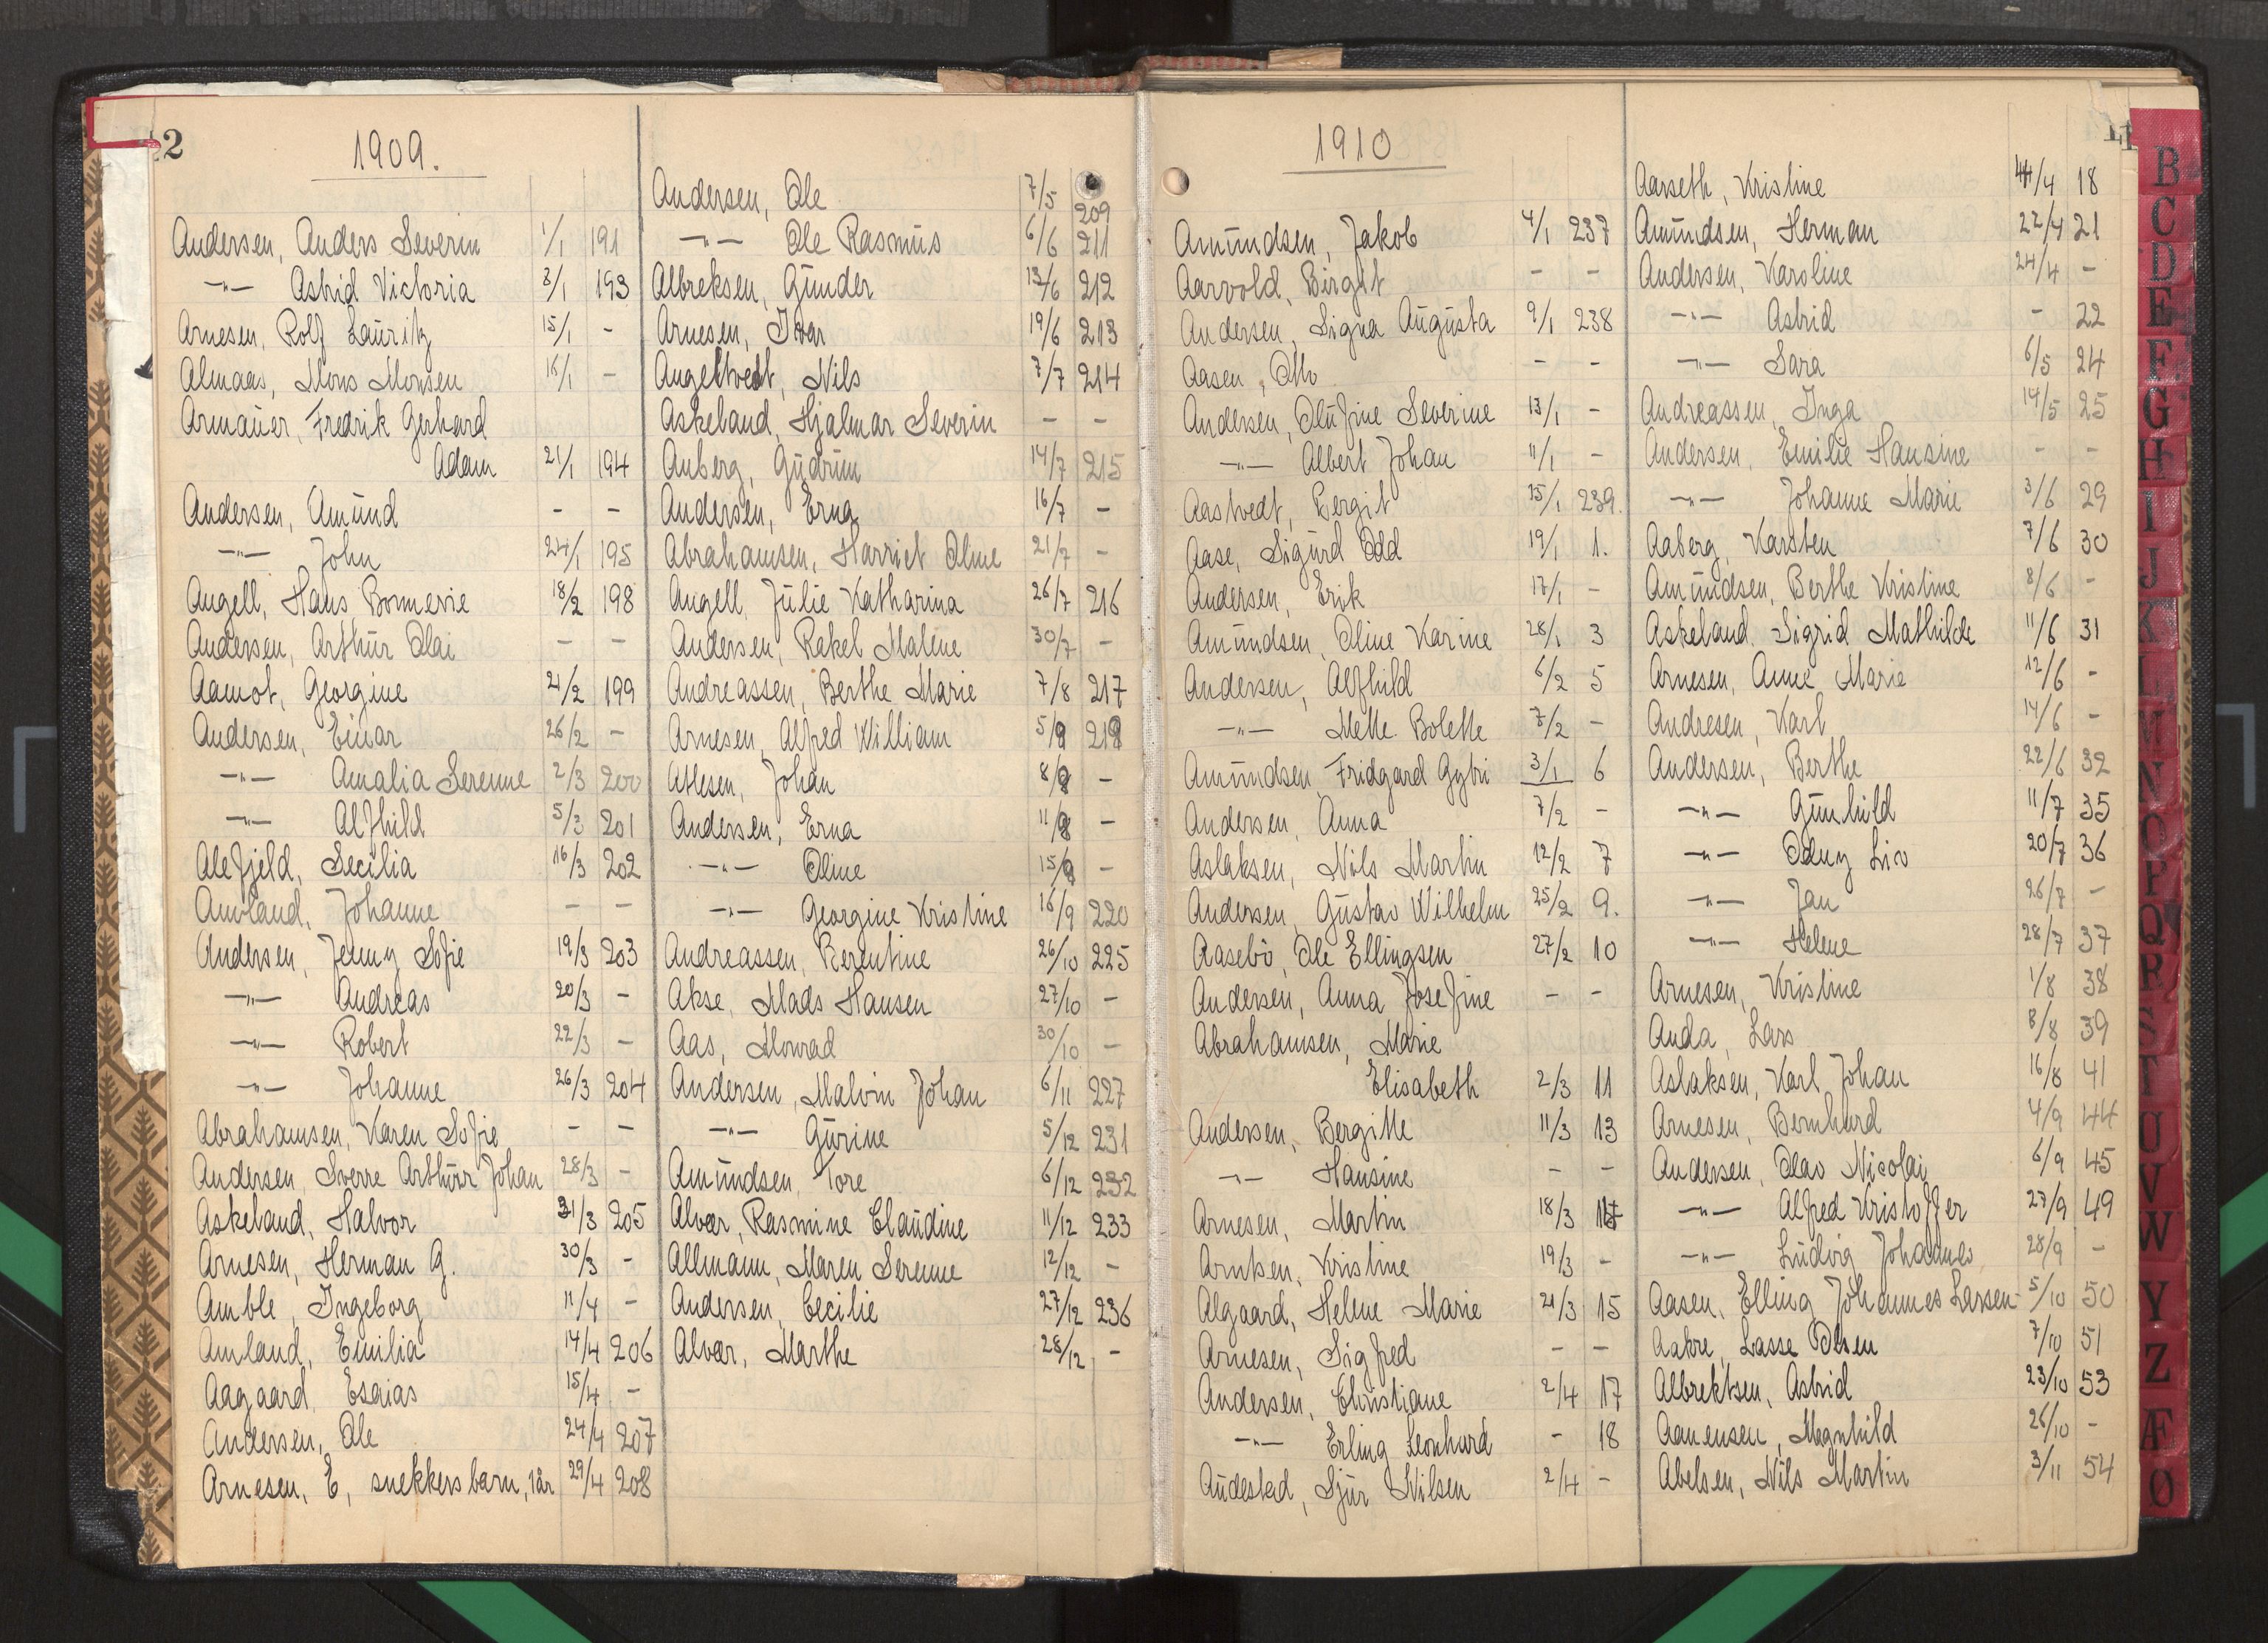 2
1909.
Andersen, Anders Severin 1/1 191
—"— Astrid Victoria 8/1 193
Arnesen, Rolf Lauritz 15/1 -
Almaas, Mons Monsen 16/1 -
Armauer, Fredrik Gerhard
Adam 21/1 194
Andersen, Amund - -
—"— John 24/1 195
Angell, Hans Bonnevie 18/2 198
Andersen, Arthur Olai - -
Aamot, Georgine 21/2 199
Andersen, Einar 26/2 -
—"— Amalia Serenne 2/3 200
—"— Alfhild 5/3 201
Alefjeld, Secilia 16/3 202
Amland, Johanne - -
Andersen, Jenny Sofie 19/3 203
—"— Andreas 20/3 -
—"— Robert 22/3 -
—"— Johanne 26/3 204
Abrahamsen, Karen Sofie - -
Andersen, Sverre Arthurr Johan 28/3 -
Askeland, Halvor 31/3 205
Arnesen, Herman G. 30/3 -
Amble, Ingeborg 11/4 -
Amland, Emilia 14/4 206
Aagaard, Esaias 15/4 -
Andersen, Ole 24/4 207
Arnesen, E, snekkers barn, 1 år 29/4 208
Andersen, Ole 7/5 209
—"— Ole Rasmus 6/6 211
Albreksen, Gunder 13/6 212
Arnesen, Ivar 19/6 213
Angeltvedt, Nils 7/7 214
Askeland, Hjalmar Severin - -
Anberg, Gudrun 14/7 215
Andersen, Erna 16/7 -
Abrahamsen, Harriet Oline 21/7 -
Angell, Julie Katharina 26/7 216
Andersen, Rakel Malene 30/7 -
Andreassen, Berthe Marie 7/8 217
Arnesen, Alfred William 5/9 219
Atlesen, Johan 8/9 -
Andersen, Erna 11/9 -
—"— Oline 15/9 -
—"— Georgine Kristine 16/9 220
Andreassen, Berentine 26/10 225
Akse, Mads Hansen 27/10 -
Aas, Monrad 30/10 -
Andersen, Malvin Johan 6/11 227
—"— Gurine 5/12 231
Amundsen, Tore 6/12 232
Alvær, Rasmine Claudine 11/12 233
Allmann, Maren Serenne 12/12 -
Andersen, Cecilie 27/12 236
Alvær, Marthe 28/12 -
1910
Amundsen, Jakob 4/1 237
Aarvold, Birgit - -
Andersen, Signa Augusta 9/1 238
Aasen, Otto - -
Andersen, Olufine Severine 13/1 -
—"— Albert Johan 11/1 -
Aastvedt, Bergit 15/1 239.
Aase, Sigurd Odd 19/1 1.
Andersen, Erik 17/1 -
Amundsen, Oline Karine 28/1 3
Andersen, Alfhild 6/2 5
—"— Mette Bolette 7/2 -
Amundsen, Fridgard Gybri 3/1 6
Andersen, Anna 7/2 -
Aslaksen, Nils Martin 12/2 7
Andersen, Gustav Wilhelm 25/2 9.
Aasebö, Ole Ellingsen 27/2 10
Andersen, Anna Josefine - -
Abrahamsen, Marie
Elisabeth 2/3 11
Andersen, Bergitte 11/3 13
—"— Hansine - -
Arnesen, Martin 18/3 14
Arntsen, Kristine 19/3 -
Algaard, Helene Marie 21/3 15
Arnesen, Sigfred - -
Andersen, Christiane 2/4 17
—"— Erling Leonhard - 18
Audestad, Sjur Nilsen 2/4 -
Aarseth, Kristine 4/4 18
Amundsen, Herman 22/4 21
Andersen, Karoline 24/4 -
—"— Astrid - 22
—"— Sara 6/5 24
Andreassen, Inga 14/5 25
Andersen, Emilie Hansine - -
—"— Johanne Marie 3/6 29
Aaberg, Karsten 7/6 30
Amundsen, Berthe Kristine 8/6 -
Askeland, Sigrid Mathilde 11/6 31
Arnesen, Anne Marie 12/6 -
Andresen, Karl 14/6 -
Andersen, Berthe 22/6 32
—"— Gunhild 11/7 35
—"— Odny Liv 20/7 36
—"— Jan 26/7 -
—"— Helene 28/7 37
Arnesen, Kristine 1/8 38
Anda, Lars 8/8 39
Aslaksen, Karl Johan 16/8 41
Arnesen, Bernhard 4/9 44
Andersen, Olav Nicolai 6/9 45
—"— Alfred Kristoffer 27/9 49
—"— Ludvig Johannes 28/9 -
Aasen, Elling Johannes Larsen 5/10 50
Aakre, Lasse Olsen 7/10 51
Albrektsen, Astrid 23/10 53
Aanensen, Magnhild 26/10 -
Abelsen, Nils Martin 3/11 54
B
C
D
E
F
G
H
I
J
K
L
M
N
O
P
Q
R
S
T
U
V
W
Y
Z
Æ
Ø